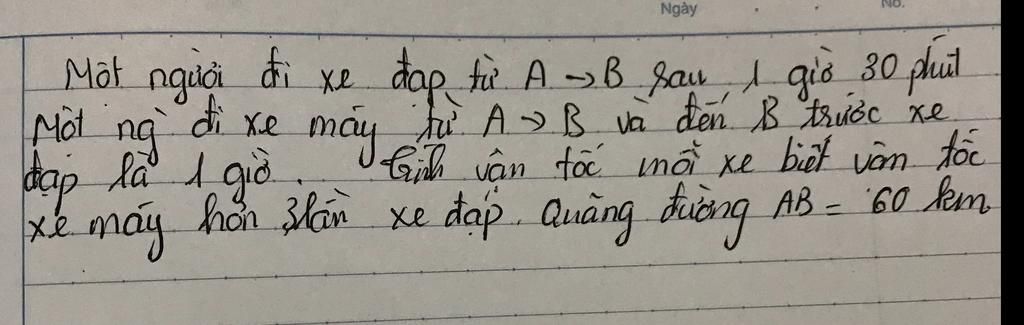 Ngày
No.
Một người đi xe đạp từ A → B sau 1 giờ 30 phút
Một ng` đi xe máy từ A → B và đến B trước xe
đạp là 1 giờ. Tính vận tốc mỗi xe biết vận tốc
xe máy hơn 3 lần xe đạp. Quãng đường AB = 60 km